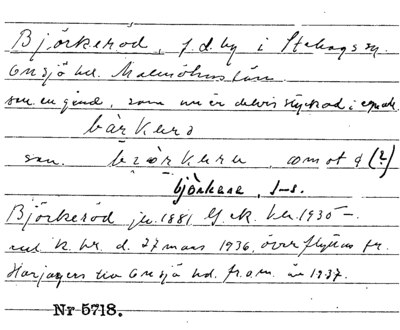 Björkeröd, f.d. by i Stehags sn.
Onsjö hd. Malmöhus län.
sen en gård, som nu är delvis styckad i egnah.
bàrkərə
sen. bærkərə, omot d (?)
björkare, s-s.
Björkeröd je. 1881 hd. 1930 –.
enl. K. br. d. 27 mars 1936, överflyttas fr.
Harjagers till Onsjö hd. fr. o. m. år 1937.
Nr 5718.